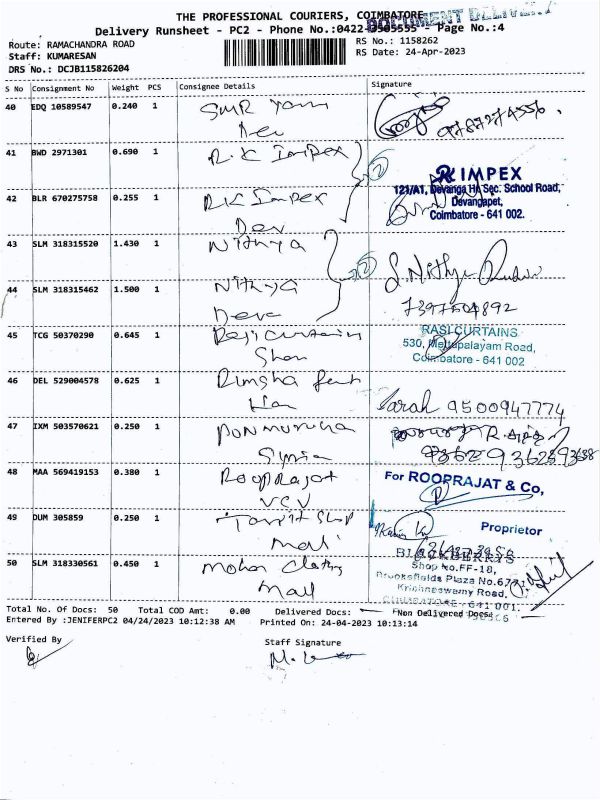 THE PROFESSIONAL COURIERS, COIMBATORE
Delivery Runsheet - PC2 - Phone No.:0422-3505555 - Page No.:4
DOCUMENT DELIVERY
Route: RAMACHANDRA ROAD
Staff: KUMARESAN
DRS No.: DCJB115826204
RS No.: 1158262
RS Date: 24-Apr-2023
S No Consignment No Weight PCS Consignee Details Signature
40 EDQ 10589547 0.240 1
41 BWD 2971301 0.690 1 R.K Impex
2
RK IMPEX
121/A1, Devanga Hr. Sec. School Road,
Devangapet,
Coimbatore - 641 002.
42 BLR 670275758 0.255 1 RK Impex
Dev
43 SLM 318315520 1.430 1 Nithya
2
S. Nithya
44 SLM 318315462 1.500 1 Nithya
Deva
7397504892
45 TCG 50370290 0.645 1 Raji curtains
RASI CURTAINS
530, Mettupalayam Road,
Coimbatore - 641 002
46 DEL 529004578 0.625 1 Rimsha
Sarah 9500947774
47 IXM 503570621 0.250 1 Ponmuruga
48 MAA 569419153 0.380 1 Rooprajat
VCV
For ROOPRAJAT & Co,
Proprietor
49 DUM 305859 0.250 1
Mall
50 SLM 318330561 0.450 1 Mohan Clothing
Mall
BLACKBERRYS
Shop No.FF-18,
Brooksfields Plaza No.67
Krishnaswamy Road,
COIMBATORE - 641 001.
Total No. Of Docs: 50 Total COD Amt: 0.00 Delivered Docs: Non Delivered Docs:
Entered By :JENIFERPC2 04/24/2023 10:12:38 AM Printed On: 24-04-2023 10:13:14
Verified By Staff Signature